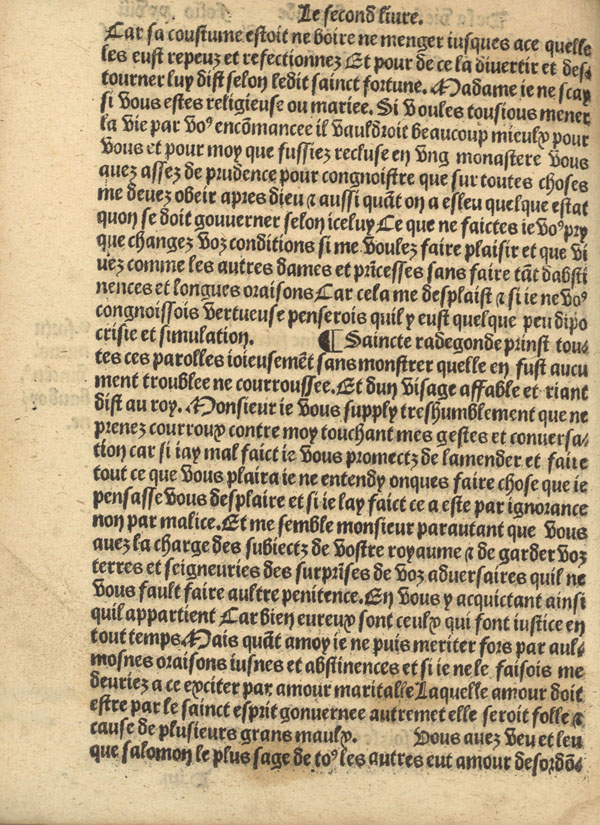 Le second liure.
Car sa coustume estoit ne boire ne menger iusques ace quelle
les eust repeuz et refectionnez Et pour de ce la diuertir et des
tourner luy dist selon ledit sainct fortune. Madame ie ne scay
si vous estes religieuse ou mariee. Si voules tousious mener
la vie par voꝰ encõmancee il vauldroit beaucoup mieulx pour
vous et pour moy que fussiez recluse en vng monastere vous
auez assez de prudence pour congnoistre que sur toutes choses
me deuez obeir apres dieu ⁊ aussi quãt on a esleu quelque estat
quon se doit gouuerner selon iceluy Ce que ne faictes ie voꝰ pry
que changez voz conditions si me voulez faire plaisir et que vi
uez comme les autres dames et prĩcesses sans faire tãt dabsti
nences et longues oraisons Car cela me desplaist ⁊ si ie ne voꝰ
congnoissois vertueuse penserois quil y eust quelque peu dipo
crisie et simulation. ¶ Saincte radegonde prinst tou-
tes ces parolles ioieusemẽt sans monstrer quelle en fust aucu
ment troublee ne courroussee. Et dun visage affable et riant
dist au roy. Monsieur ie vous supply treshumblement que ne
prenez courroux contre moy touchant mes gestes et conuersa-
tion car si iay mal faict ie vous promectz de lamender et faire
tout ce que vous plaira ie ne entendy onques faire chose que ie
pensasse vous desplaire et si ie lay faict ce a este par ignorance
non par malice. Et me semble monsieur parautant que vous
auez la charge des subiectz de vostre royaume ⁊ de garder voz
terres et seigneuries des surprĩses de voz aduersaires quil ne
vous fault faire aultre penitence. En vous y acquictant ainsi
quil appartient Car bien eureux sont ceulx qui font iustice en
tout temps. Mais quãt amoy ie ne puis meriter fors par aul-
mosnes oraisons iusnes et abstinences et si ie ne le faisois me
deuriez a ce exciter par amour maritalle Laquelle amour doit
estre par le sainct esprit gouuernee autremet elle seroit folle ⁊
cause de plusieurs grans maulx. Vous auez veu et leu
que salomon le plus sage de toꝰ les autres eut amour desordõ-